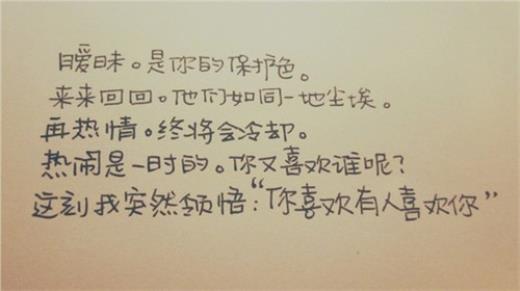 暧昧。是你的保护色。
来来回回。他们如同一地尘埃。
再热情。终将会冷却。
热闹是一时的。你又喜欢谁呢？
这刻我突然领悟：“你喜欢有人喜欢你”